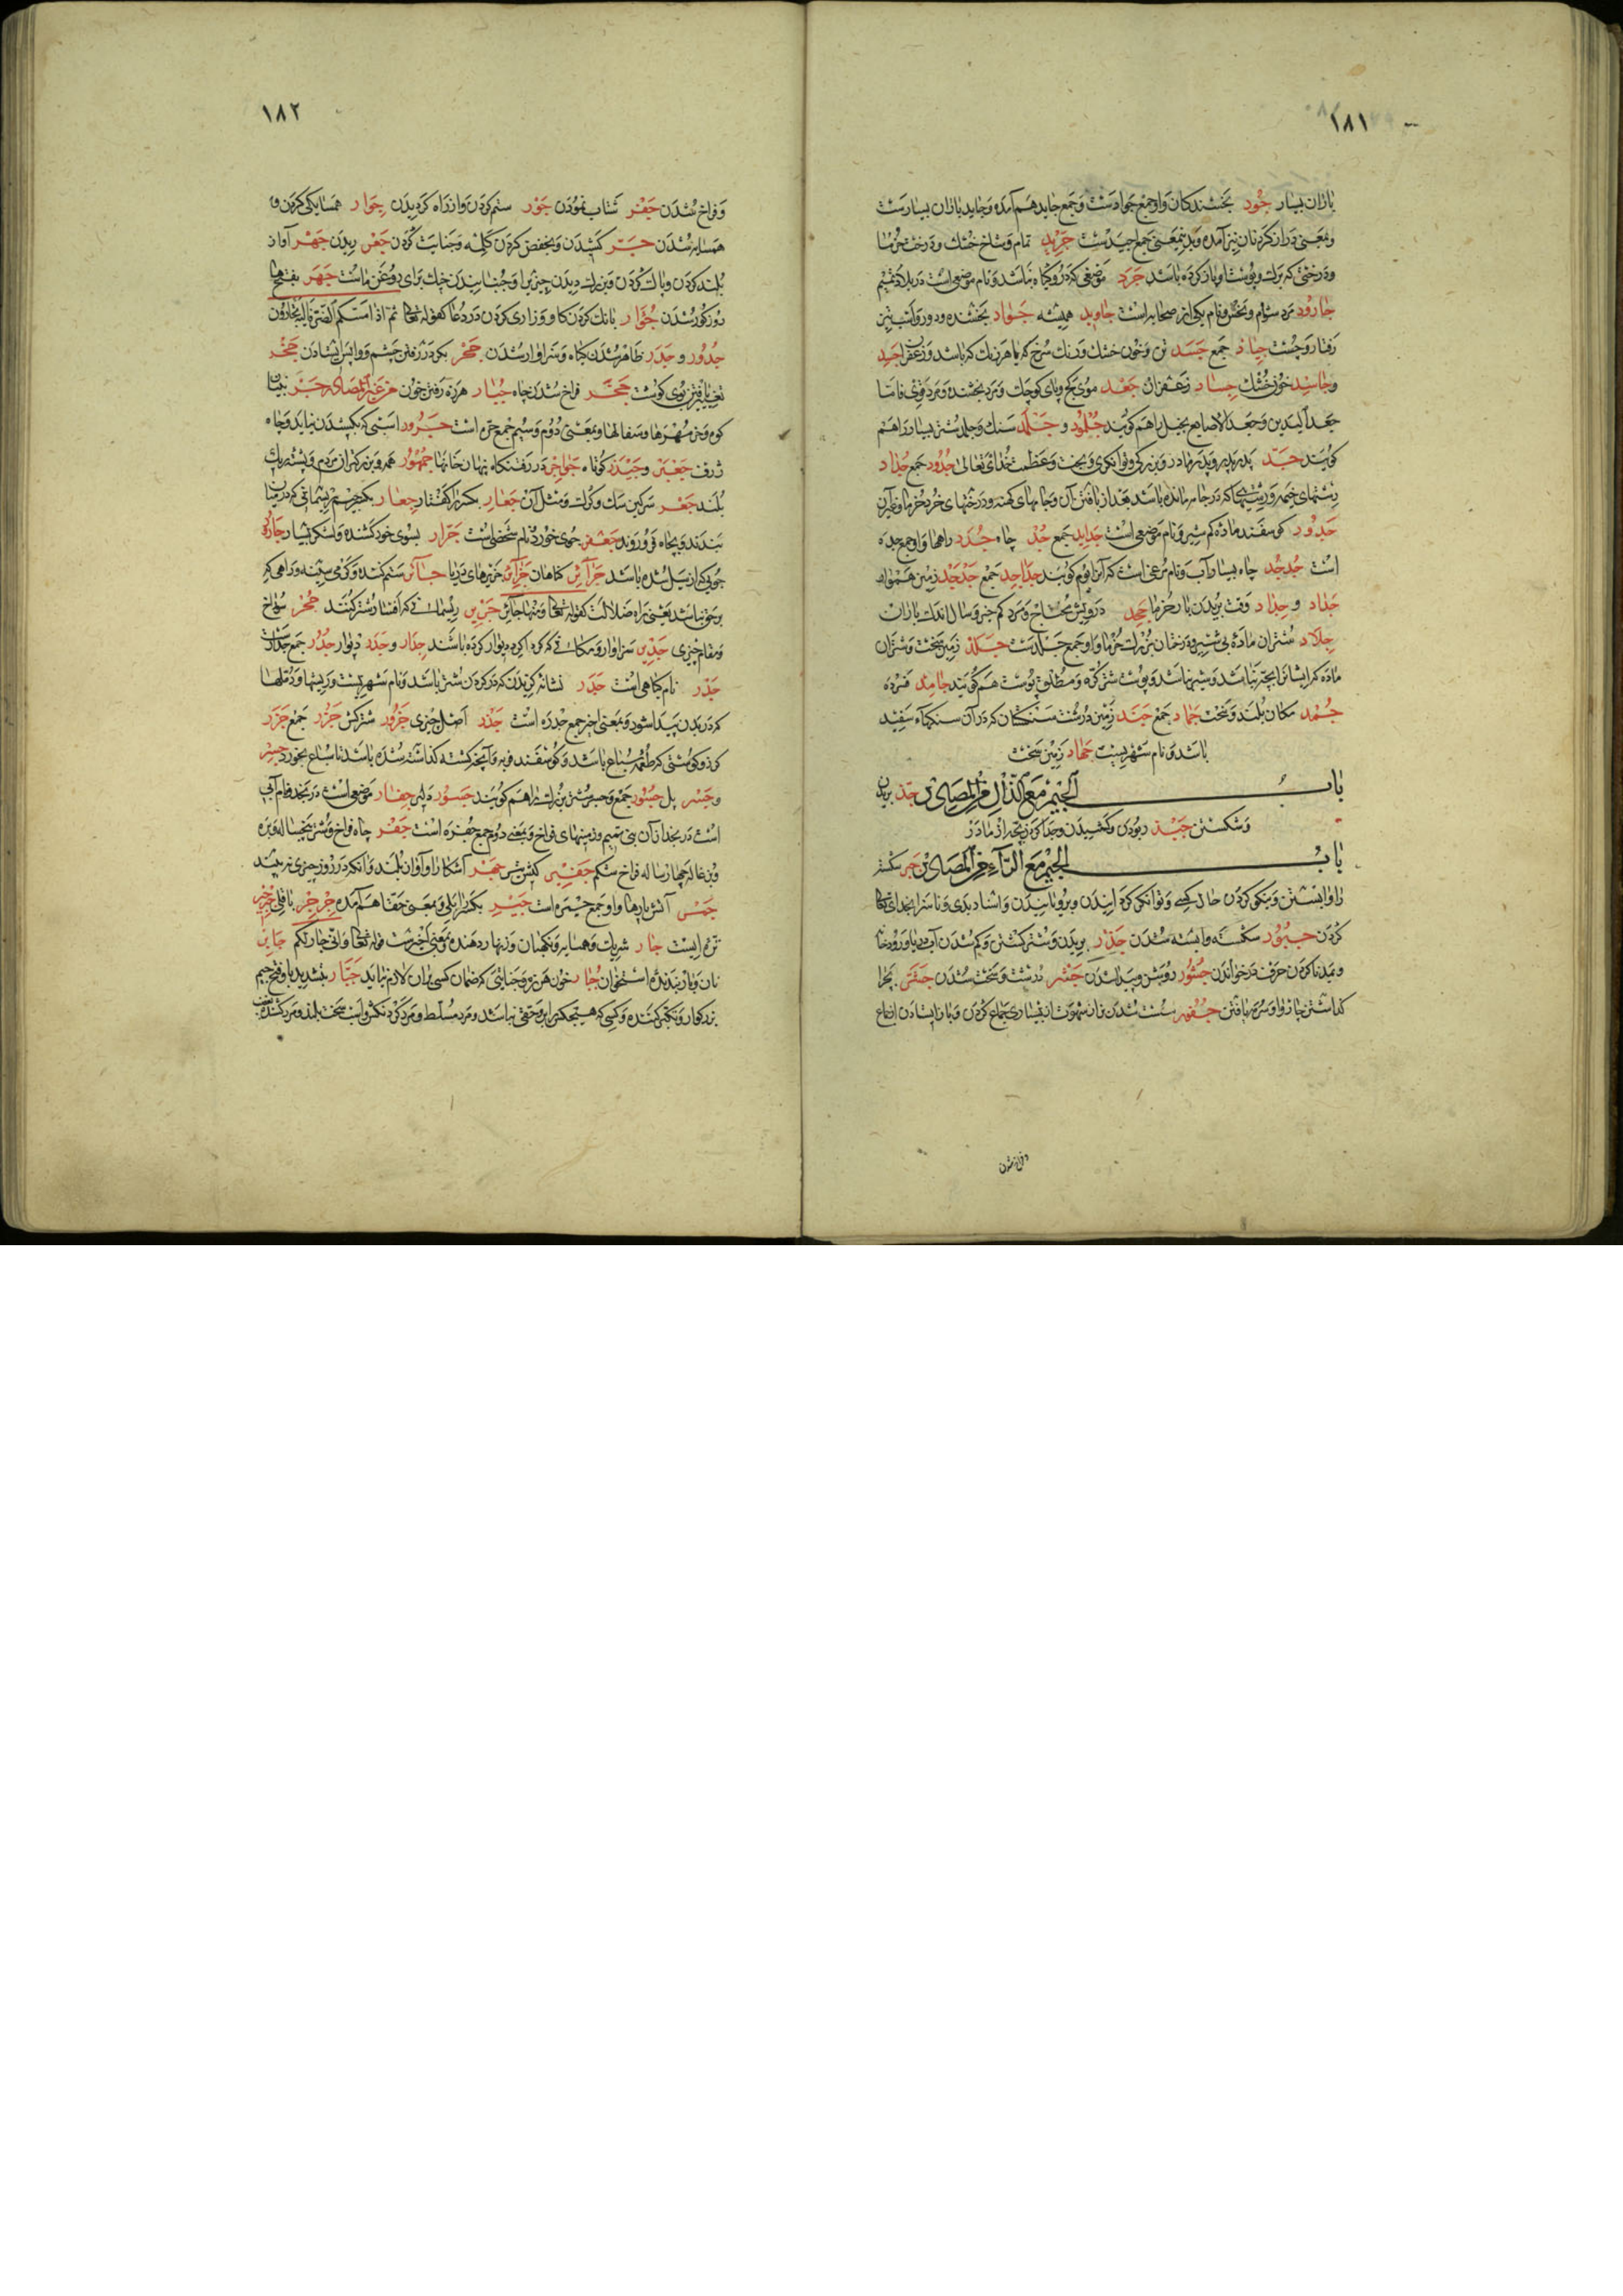 ۱۸۱
باران بسیار جُود بخشندکان واو جمع جوادست و جمع جاید هم آمده و جاید باران بسیارست
و بمعنی دراز کردنان نیز آمده و بدینمعنی جمع اجیدست جرید تمام و شاخ خشک و درخت خرما
و درختی که برک و پوست او باز کرده باشد جرد موضعی که درو کیاه نباشد و نام موضعی است در بلاد تمیم
جارود مرد شوم و نام یکی از صحابه است جاوید همیشه جواد بخشنده و دور و اسب تیز
رفتار و چست جیاد جمع جسد تن و خون خشک و رنک سرخ که با هر رنک که باشد و زعفران جسد
و جاسد خون خشک جساد زعفران جعد موی کج و پای کوچک و مرد بخشنده و مرد قوی اما
جعد الیدین و جعد الاصابع بخیل را هم کویند جلمود و جلمد سنک و جلمد شتر بسیار را هم
کویند جد پدر پدر و پدر مادر و بزرکی و توانکری و بخت و عظمت خدای تعالی جدود جمع جداد
ریشهای خیمه و ریشهای که در جامه مانده باشد بعد از بافتن آن و جامهای کهنه و درختهای خرد خرما و غیر آن
جدود کوسفند ماده کم شیر و نام موضعی است جداید جمع جد چاه جدد راهها واو جمع جده
است جدجد چاه بسیار آب و نام مرغی است که آنرا بوم کویند جداجد جمع جدجد زمین هموار
جداد و جداد وقت بریدن بار خرما جحد درویش محتاج و مرد کم خیر و سال اندک باران
جلاد شتران ماده بی شیر و درختان بزرک خرما واو جمع جلدست جلد زمین سخت و شتران
ماده که ایشانرا بچه نباشد و شیر نباشد و پوست شتر کره و مطلق پوست هم کویند جامد فسرده
جمد مکان بلند و سخت جماد جمع جمد زمین درشت سنکستان که در آن سنکهاء سفید
باشد و نام شهریست جماد زمین سخت
باب الجیم مع الذال من المصادر جذ بریدن
و شکستن جبذ ربودن و کشیدن و جدا کردن بچه از مادر
باب الجیم مع الرآء من المصادر جبر شکسته
را وابستن و نیکو کردن حال کسی و توانکر کردانیدن
کردن جبور شکسته وابسته شدن جذر بریدن و شتر کشتن و کم شدن آب دریا و رود
و پیدا کردن حرف در خواندن جشور روشن و پیدا شدن جشر درشت و سخت شدن جشر بچرا
کذاشتن چاروا و سرفه یافتن جفور سست شدن نر از شهوت از بسیاری جماع کردن و باز ایستادن از جماع
و فراخ شدن
۱۸۲
و فراخ شدن جفر شتاب نمودن جور ستم کردن و از راه کردیدن جوار همسایکی کردن و
همسایه شدن جر کشیدن و بخفض کردن کلمه و جنایت کردن جعر ریدن جهر آواز
بلند کردن و پاک کردن و بزرک دیدن چیزی را و جنبانیدن خیک برای روغن ماست جهر بفتح ها
روزکور شدن جؤار بانک کردن کاو و زاری کردن در دعا کقوله تعالی ثم اذا مسکم الضر فالیه تجأرون
جدور و جدر ظاهر شدن کیاه و سزاوار شدن جحر بکو در رفتن چشم و واپس ایستادن جخر
تغییر یافتن بوی کوشت جخر فراخ شدن چاه جبار هرزه رفتن خون من غیر المصادر جر بنیان
کوه و جمع جره است جرور اسبی که بکشیدن نیاید و چاه
ژرف جعبر و جیدر کوتاه جواجر جمهور همه و بزرکتر از مردم و پشته ریک
بلند جعر سرکین سک و کرک و مثل آن جعار کفتار جعار بکسر جیم ریسمانی که در میان
بندند و بچاه فرو روند جعفر جوی خرد و نام شخصی است جرار بسوی خود کشنده و لشکر بسیار جاره
جویی که از سیل شده باشد جرآئر کناهان جزائر جزیرهای دریا جائر ستم کننده و کرمی سینه و راهی که
بر حق نباشد یعنی براه ضلالت کقوله تعالی و منها جائر جریر ریسمانی که افسار شتر کنند جحر سوراخ
و مقام چیزی جدیر سزاوار و مکانی که کرداکرد دیوار کرده باشند جدار و جدر دیوار جدر جمع جدار
جدر نام کیاهی است جدر نشانه کزیدن که در کردن شتر باشد و نام شهریست و ریشها و دملها
که در بدن پیدا شود و بمعنی اخیر جمع جدره است جذر اصل چیزی جزور شتر کش جزر جمع جزر
کزر و کوشتی که طعمه سباع باشد و کوسفند فربه و آنچه کشته کذاشته شده باشد تا سباع بخورد جسر
و جسر پل جسور جمع و جسر شتر بزرک را هم کویند جسور دلیر جفار موضعی است در نجد و نام آبی
است در نجد از آن بنی تمیم و زمینهای فراخ و بمعنی دوم جمع جفره است جفر چاه فراخ و شتر پنجساله و بره
و بزغاله چهار ماهه فراخ شکم جفیر کیش تیر جهر آشکارا و آواز بلند و آنکه در روز چیزی نه بیند
جمر آتش پارها واو جمع جمره است جیر بکسر را بلی و بمعنی حقا هم آمده جرجر باقلی جرجیر
تره ایست جار شریک و همسایه و نکهبان و زنهار دهنده و بمعنی اخیرست قوله تعالی و انی جار لکم جابر
نان و باز بندنده استخوان جبار خون هرزه و جنایتی که ضمان کسی بران لازم نیاید جبار بتشدید با و فتح جیم
بزرکوار و تکبر کننده و کسی که هیچکس را برو حقی نباشد و مرد مسلط و مرد کردنکش و اسب سخت بلند و مرد کشنده